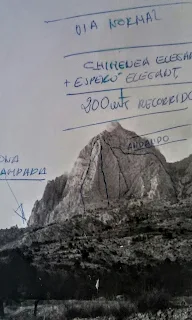 DIA NORMAL
CHIMENEA ELEGAN
+ ESPERO" ELEGANT.
200 mt RECORRIDO
ANDANDO
ONA
AMPADA